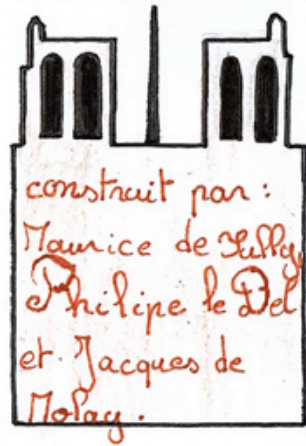 construit par :
Maurice de Sully,
Philipe le Bel
et Jacques de
Molay.